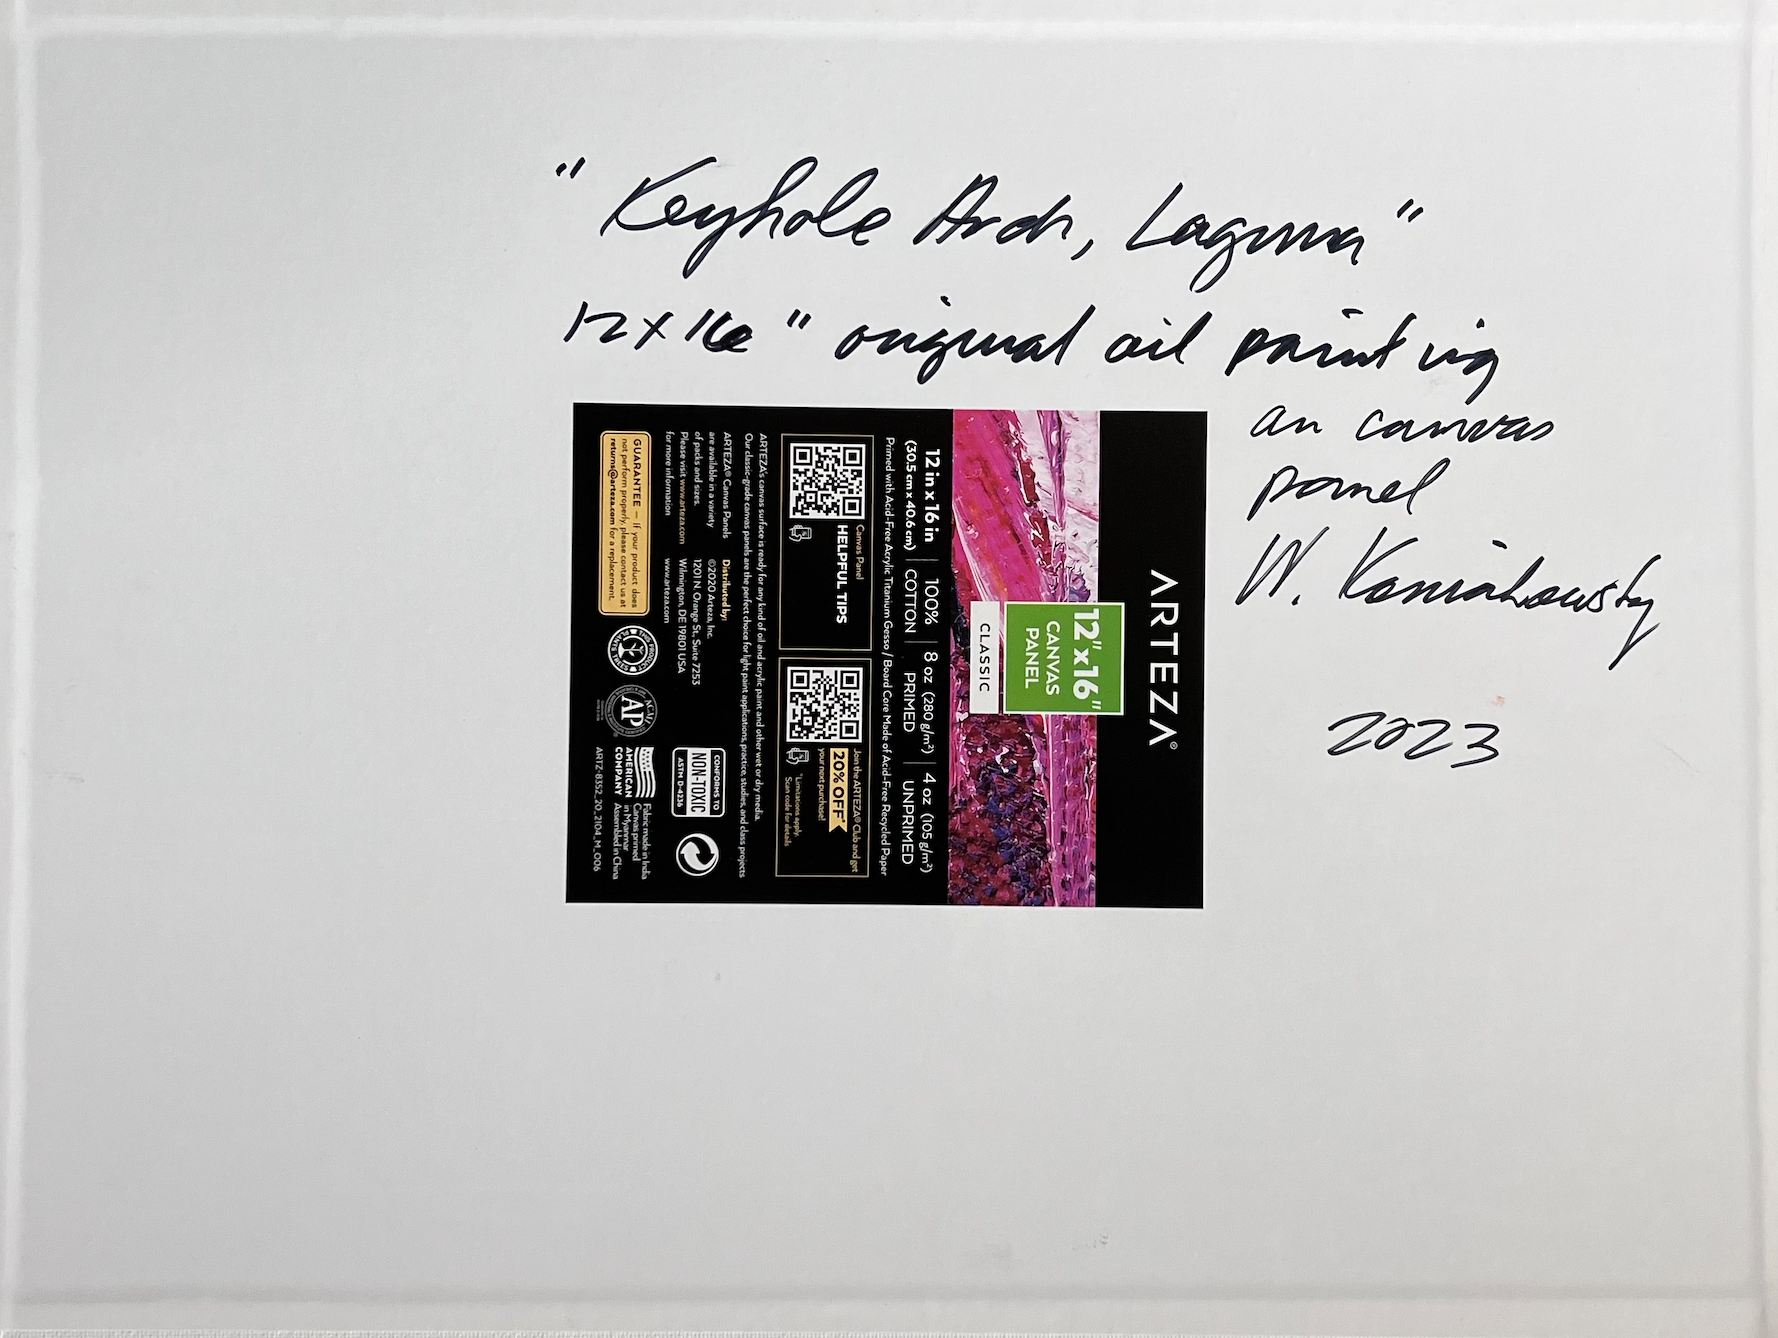 "Keyhole Arch, Laguna"
12 x 16" original oil painting
on canvas
panel
W.
2023
ARTEZA®
12"x16"
CANVAS
PANEL
CLASSIC
12 in x 16 in | 100% | 8 oz (280 g/m²) | 4 oz (105 g/m²)
(30.5 cm x 40.6 cm) | COTTON | PRIMED | UNPRIMED
Primed with Acid-Free Acrylic Titanium Gesso / Board Core Made of Acid-Free Recycled Paper
Canvas Panel
HELPFUL TIPS
Join the ARTEZA® Club and get
20% OFF*
your next purchase!
*Limitations apply.
Scan code for details
ARTEZA's canvas surface is ready for any kind of oil and acrylic paint and other wet or dry media.
Our classic-grade canvas panels are the perfect choice for light paint applications, practice, studies, and class projects
ARTEZA® Canvas Panels
are available in a variety
of packs and sizes.
Please visit www.arteza.com
for more information
Distributed by:
©2020 Arteza, Inc.
1201 N. Orange St, Suite 7253
Wilmington, DE 19801 USA
www.arteza.com
CONFORMS TO
NON-TOXIC
ASTM D-4236
GUARANTEE — If your product does
not perform properly, please contact us at
returns@arteza.com for a replacement.
AP
AMERICAN
COMPANY
Fabric made in India
Canvas primed
in Myanmar
Assembled in China
ARTZ-8352_20_2104_M_006